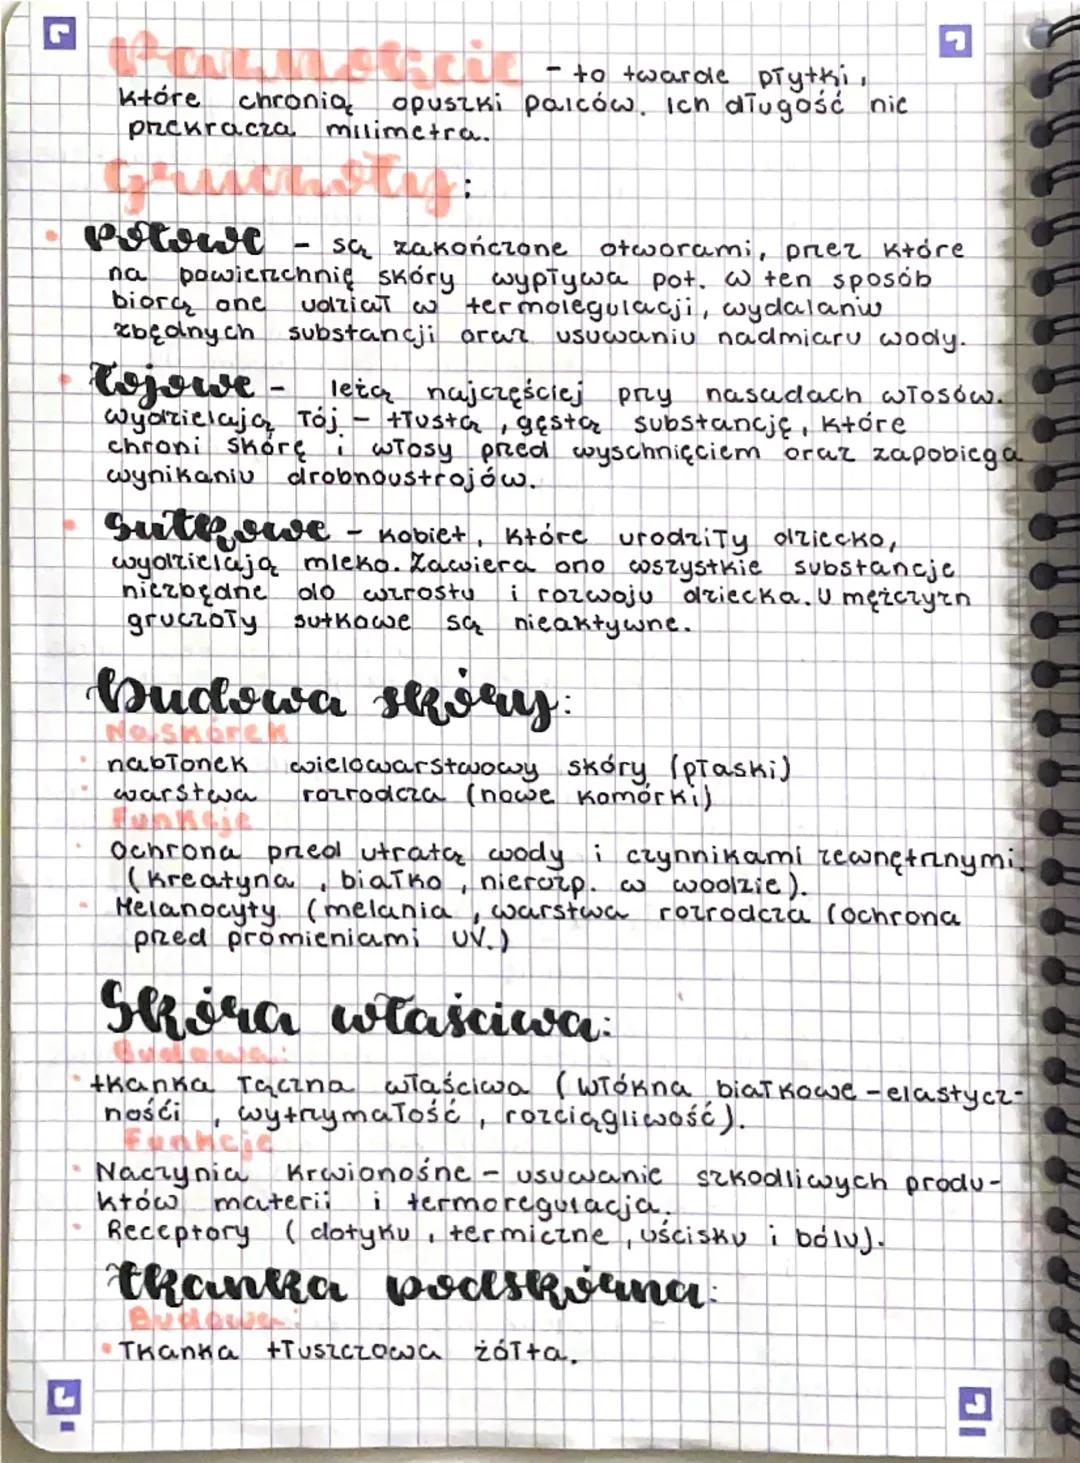 Paznokcie - to twarde płytki,
które chronią opuszki palców. Ich długość nie
przekracza milimetra.
Gruczoły:
• Potowe - są zakończone otworami, przez które
na powierzchnię skóry wypływa pot. W ten sposób
biorą one udział w termolegulacji, wydalaniu
zbędnych substancji oraz usuwaniu nadmiaru wody.
• Łojowe - leżą najczęściej przy nasadach włosów.
Wydzielają łój - tłustą, gęstą substancję, które
chroni skórę i włosy przed wyschnięciem oraz zapobiega
wynikaniu drobnoustrojów.
• Sutkowe - kobiet, które urodziły dziecko,
wydzielają mleko. Zawiera ono wszystkie substancje
niezbędne do wzrostu i rozwoju dziecka. U mężczyzn
gruczoły sutkowe są nieaktywne.
Budowa skóry:
Naskórek
• nabłonek wielowarstwowy skóry (płaski)
• warstwa rozrodcza (nowe komórki)
Funkcje
• Ochrona przed utratą wody i czynnikami zewnętrznymi.
(kreatyna, białko, nierozp. w wodzie).
• Melanocyty (melania, warstwa rozrodcza (ochrona
przed promieniami UV.)
Skóra właściwa:
Budowa:
• tkanka łączna właściwa (włókna białkowe - elastycz-
nośći, wytrzymałość, rozciągliwość).
Funkcje
• Naczynia krwionośne - usuwanie szkodliwych produ-
któw materii i termoregulacja.
• Receptory (dotyku, termiczne, uścisku i bólu).
Tkanka podskórna:
Budowa:
• Tkanka tłuszczowa żółta.